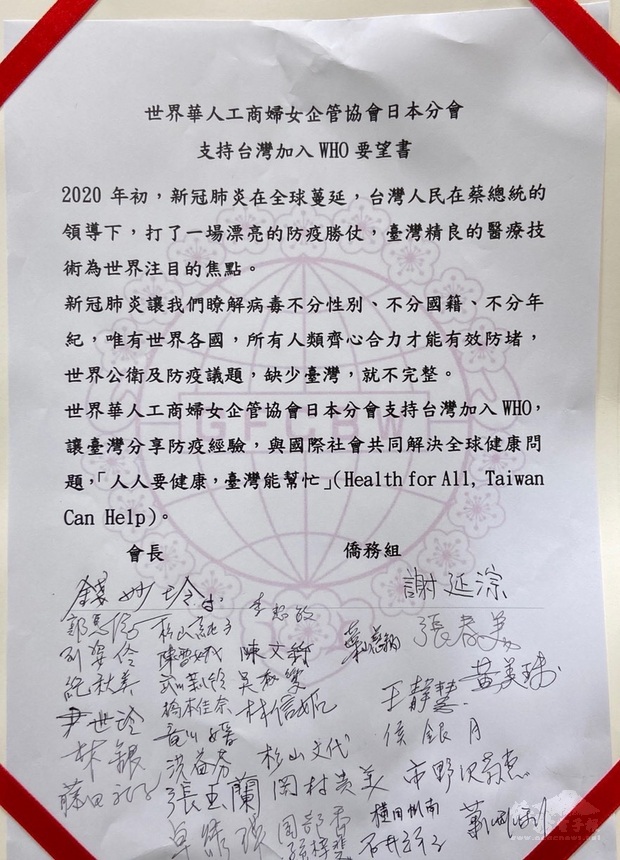 世界華人工商婦女企管協會日本分會
支持台灣加入 WHO 要望書
2020 年初，新冠肺炎在全球蔓延，台灣人民在蔡總統的
領導下，打了一場漂亮的防疫勝仗，臺灣精良的醫療技
術為世界注目的焦點。
新冠肺炎讓我們瞭解病毒不分性別、不分國籍、不分年
紀，唯有世界各國，所有人類齊心合力才能有效防堵，
世界公衛及防疫議題，缺少臺灣，就不完整。
世界華人工商婦女企管協會日本分會支持台灣加入 WHO，
讓臺灣分享防疫經驗，與國際社會共同解決全球健康問
題，「人人要健康，臺灣能幫忙」(Health for All, Taiwan
Can Help)。
會長 僑務組
GFCBW
錢妙玲 謝延淙
張春美
陳文
黃美
王靜慧
尹世玲 橋本佳奈 林信姬 侯銀月
林銀 洪益芬 杉山文代
藤田 張亞蘭 岡村貴美 市野沢
卓 國部 横田
石井